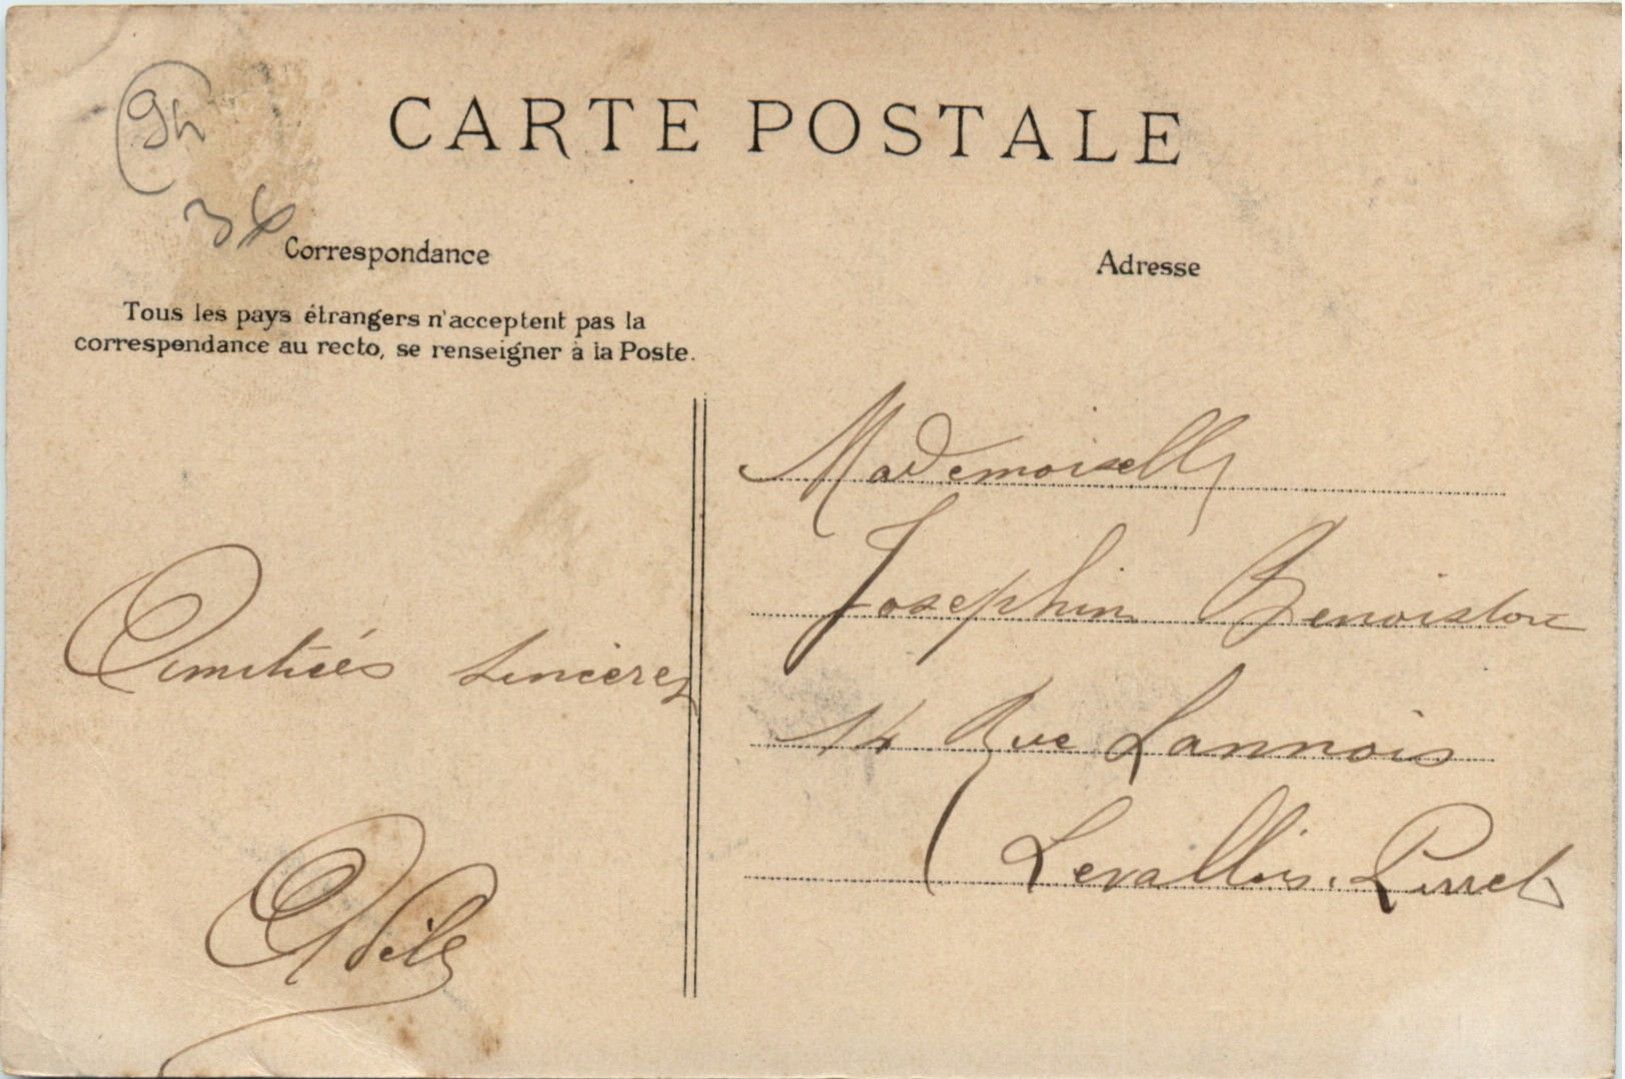 94
3x
CARTE POSTALE
Correspondance
Adresse
Tous les pays étrangers n'acceptent pas la
correspondance au recto, se renseigner à la Poste.
Mademoiselle
Josephine
14 Rue Lannois
Levallois-Perret
Amitiés sincères